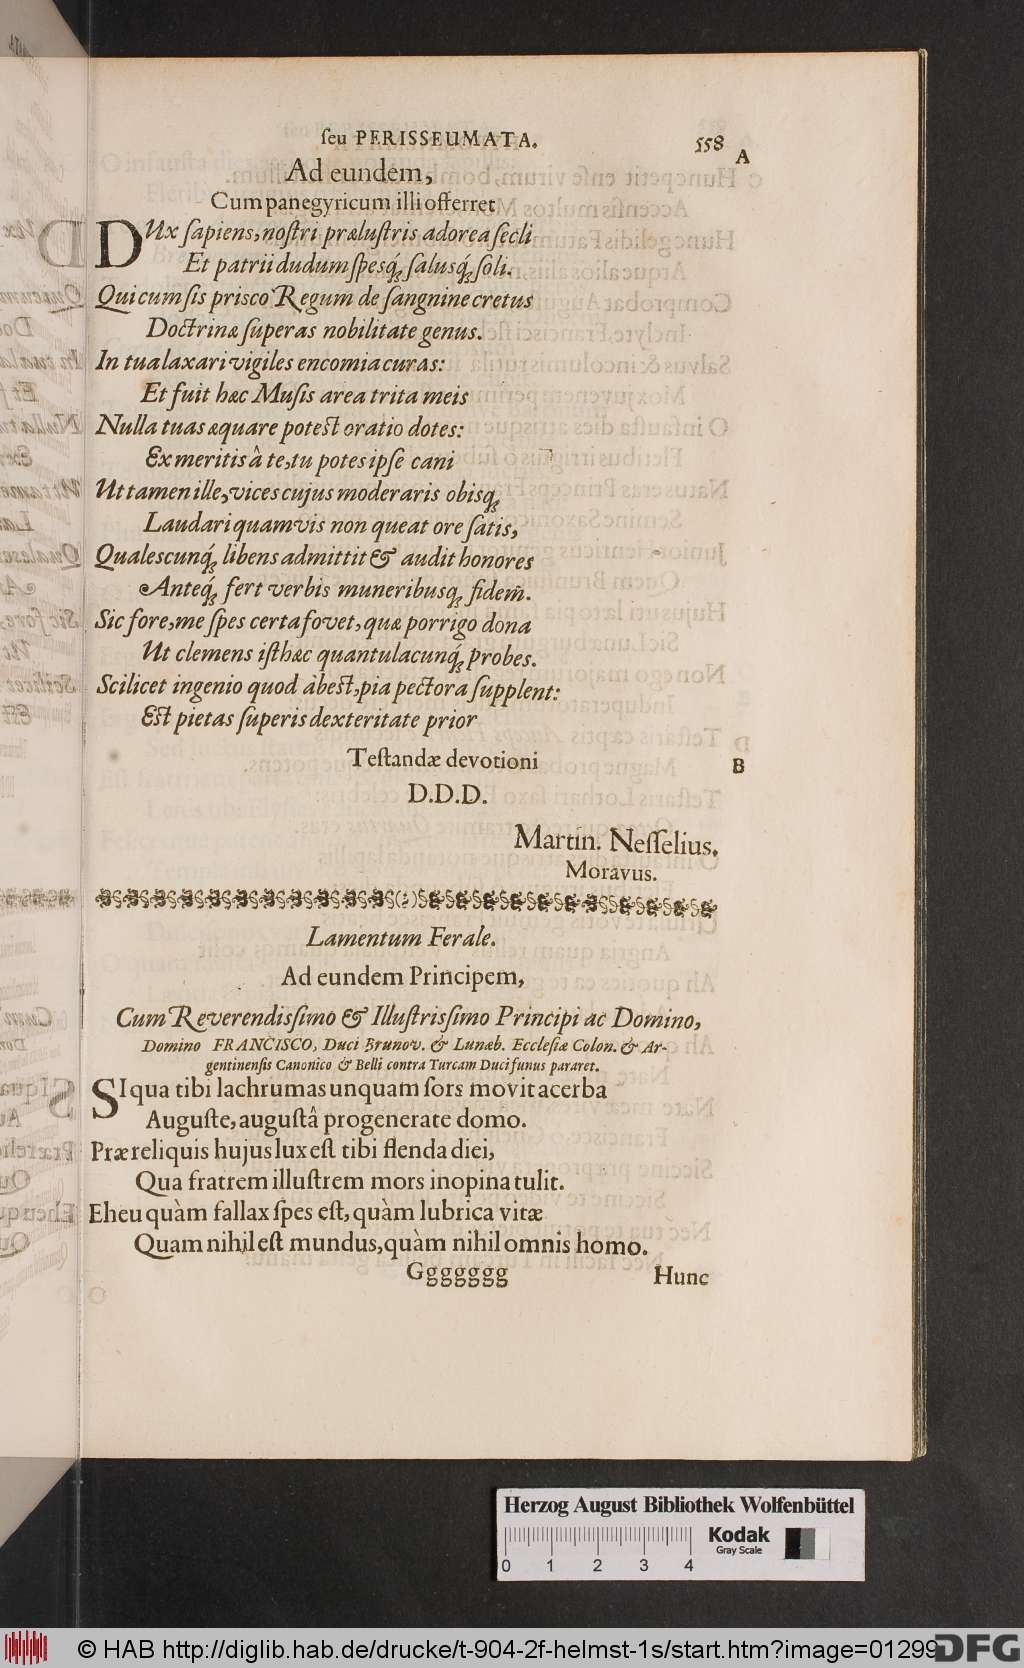 ſeu PERISSEUMATA. 558
A
Ad eundem,
Cum panegyricum illi offerret
DUx ſapiens, noſtri præluſtris adorea ſecli
Et patrii dudum ſpesq́; ſalusq́; ſoli.
Qui cum ſis priſco Regum de ſangnine cretus
Doctrinæ ſuperas nobilitate genus.
In tua laxari vigiles encomia curas:
Et fuit hæc Muſis area trita meis
Nulla tuas æquare potest oratio dotes:
Ex meritis â te, tu potes ipſe cani
Ut tamen ille, vices cujus moderaris obisq;
Laudari quamvis non queat ore ſatis,
Qualescunq́; libens admittit & audit honores
Anteq́; fert verbis muneribusq; fidem̃.
Sic fore, me ſpes certa fovet, quæ porrigo dona
Ut clemens iſthæc quantulacunq́; probes.
Scilicet ingenio quod àbest, pia pectora ſupplent:
Est pietas ſuperis dexteritate prior
Teſtandæ devotioni
B
D.D.D.
Martin. Neſſelius.
Moravus.
Lamentum Ferale.
Ad eundem Principem,
Cum Reverendiſſimo & Illuſtriſſimo Principi ac Domino,
Domino FRANCISCO, Duci Brunov. & Lunæb. Eccleſiæ Colon. & Ar-
gentinenſis Canonico & Belli contra Turcam Duci funus pararet.
SI qua tibi lachrumas unquam ſors movit acerba
Auguſte, auguſtâ progenerate domo.
Præ reliquis hujus lux eſt tibi flenda diei,
Qua fratrem illuſtrem mors inopina tulit.
Eheu quàm fallax ſpes eſt, quàm lubrica vitæ
Quam nihil eſt mundus, quàm nihil omnis homo.
Ggggggg Hunc
Herzog August Bibliothek Wolfenbüttel
Kodak
Gray Scale
0 1 2 3 4
© HAB http://diglib.hab.de/drucke/t-904-2f-helmst-1s/start.htm?image=01299
DFG